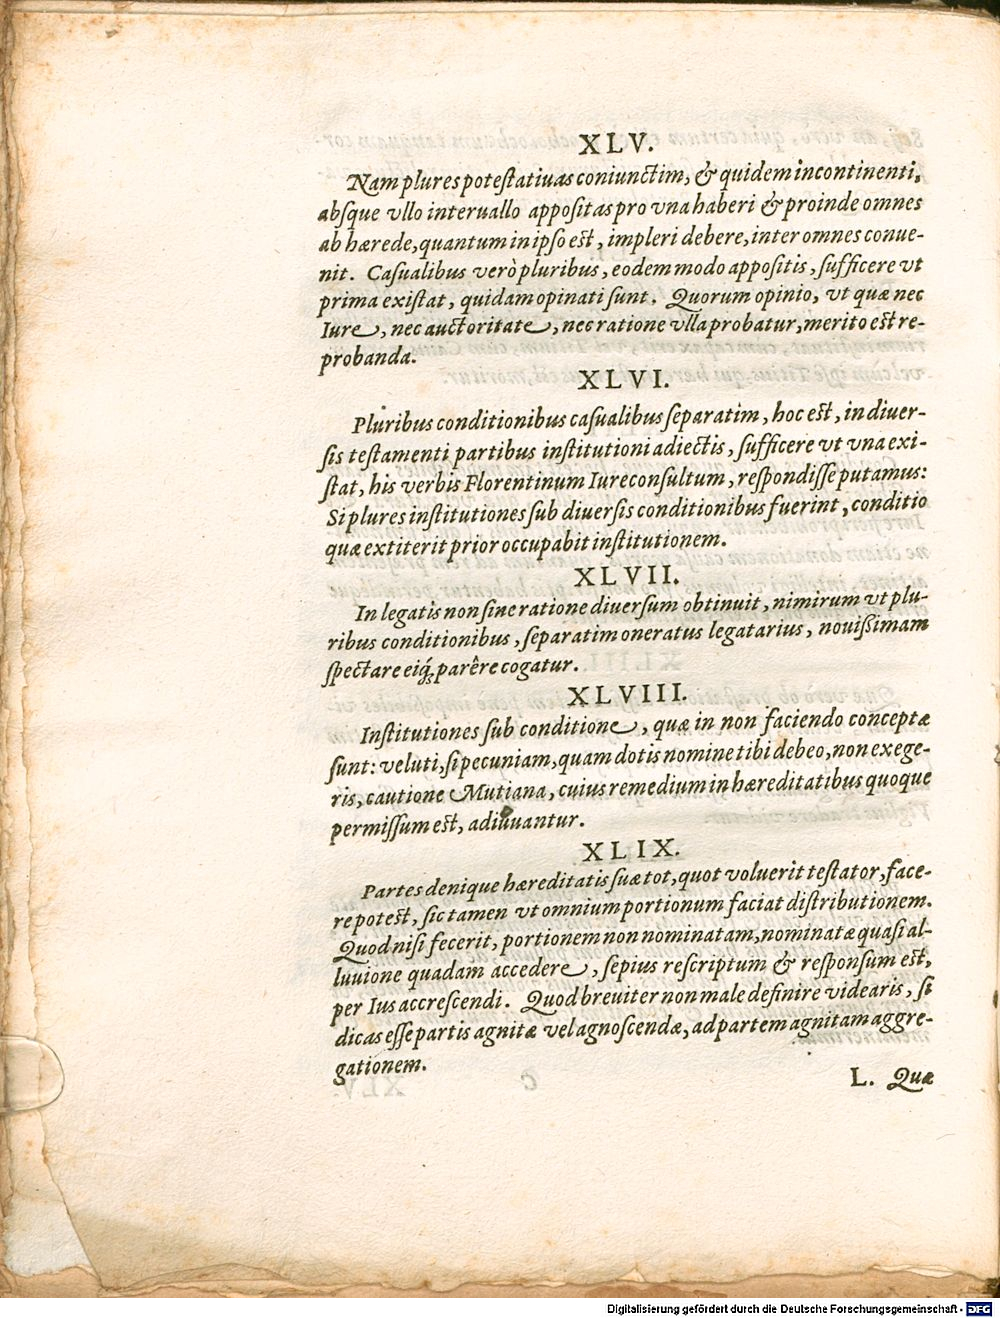 XLV.
Nam plures potestatiuas coniunctim, & quidem incontinenti,
absque vllo interuallo appositas pro vna haberi & proinde omnes
ab hærede, quantum in ipso est, impleri debere, inter omnes conue-
nit. Casualibus verò pluribus, eodem modo appositis, sufficere vt
prima existat, quidam opinati sunt. Quorum opinio, vt quæ nec
Iure, nec auctoritate, nec ratione vlla probatur, merito est re-
probanda.
XLVI.
Pluribus conditionibus casualibus separatim, hoc est, in diuer-
sis testamenti partibus institutioni adiectis, sufficere vt vna exi-
stat, his verbis Florentinum Iureconsultum, respondisse putamus:
Si plures institutiones sub diuersis conditionibus fuerint, conditio
quæ extiterit prior occupabit institutionem.
XLVII.
In legatis non sine ratione diuersum obtinuit, nimirum vt plu-
ribus conditionibus, separatim oneratus legatarius, nouißimam
spectare eiq́; parêre cogatur.
XLVIII.
Institutiones sub conditione, quæ in non faciendo conceptæ
sunt: veluti, si pecuniam, quam dotis nomine tibi debeo, non exege-
ris, cautione Mutiana, cuius remedium in hæreditatibus quoque
permissum est, adiuuantur.
XLIX.
Partes denique hæreditatis suæ tot, quot voluerit testator, face-
re potest, sic tamen vt omnium portionum faciat distributionem.
Quod nisi fecerit, portionem non nominatam, nominatæ quasi al-
luuione quadam accedere, sepius rescriptum & responsum est,
per Ius accrescendi. Quod breuiter non male definire videaris, si
dicas esse partis agnitæ vel agnoscendæ, ad partem agnitam aggre-
gationem.
L. Quæ
Digitalisierung gefördert durch die Deutsche Forschungsgemeinschaft - DFG